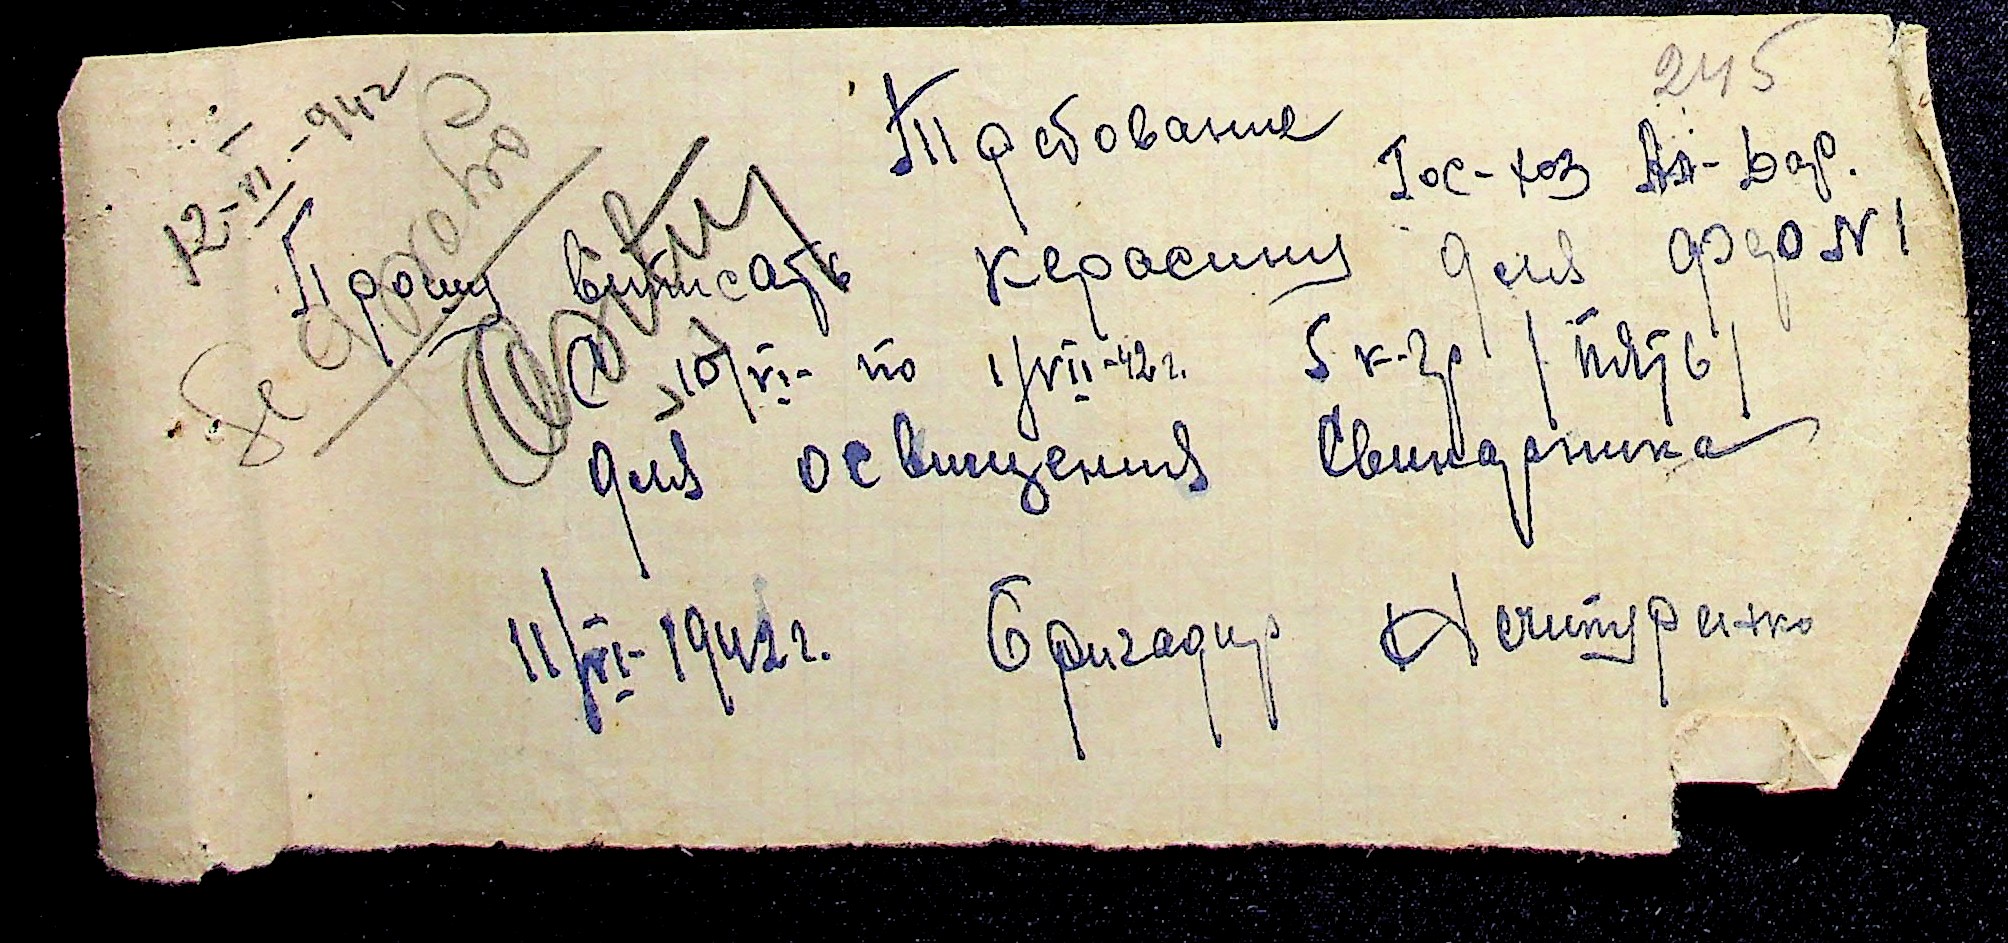 245
12-VI-942
Требование
Гос-хоз Ал-Дар.
Прошу выписать керасину для
с 10/VI- по 1/VII-42г. 5 к-гр /пять/
для освищения Свинарника
11/VI-1942г. Бригадир Нечитуренко